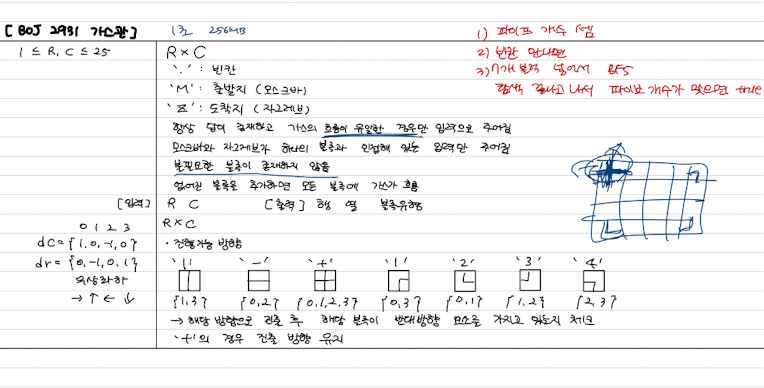 [BOJ 2931 가스관]
1초 256MB
1 ≤ R, C ≤ 25
R × C
'.' : 빈칸
'M' : 출발지 (모스크바)
'Z' : 도착지 (자그레브)
항상 답이 존재하고 가스의 흐름이 유일한 경우만 입력으로 주어짐
모스크바와 자그레브가 하나의 블록과 인접해 있는 입력만 주어짐
불필요한 블록이 존재하지 않음
없어진 블록을 추가하면 모든 블록에 가스가 흐름
[입력] R C [출력] 행 열 블록유형
R × C
1) 파이프 개수 셈
2) 빈칸 만나면
3) 7개 블럭 넣어서 BFS
탐색 끝나고 나서 파이프 개수가 맞으면 true
0 1 2 3
dc = {1, 0, -1, 0}
dr = {0, -1, 0, 1}
우상좌하
→ ↑ ← ↓
· 진행가능 방향
'|' '-' '+' '1' '2' '3' '4'
{1,3} {0,2} {0,1,2,3} {0,3} {0,1} {1,2} {2,3}
→ 해당 방향으로 진출 후 해당 블록이 반대방향 요소를 가지고 있는지 체크
'+'의 경우 진출 방향 유지